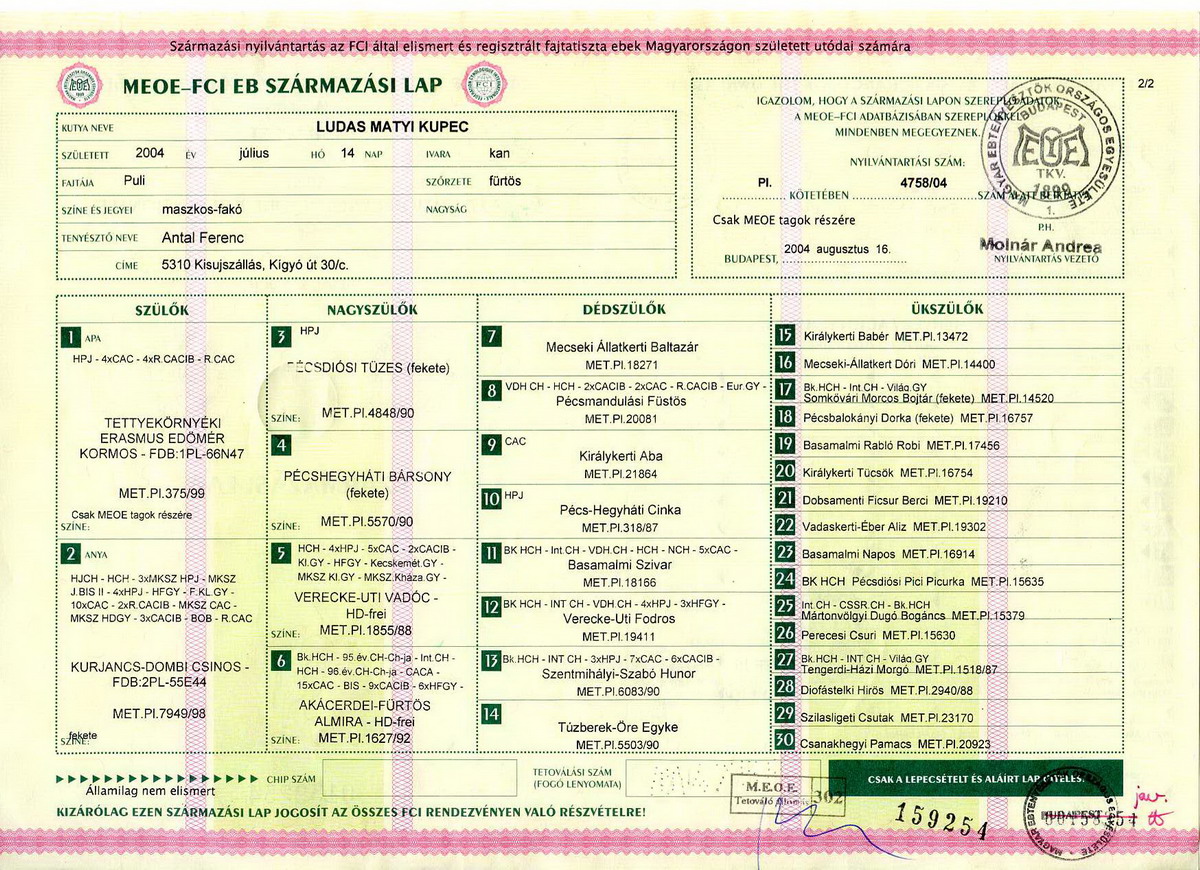 Származási nyilvántartás az FCI által elismert és regisztrált fajtatiszta ebek Magyarországon született utódai számára
MEOE–FCI EB SZÁRMAZÁSI LAP
2/2
KUTYA NEVE LUDAS MATYI KUPEC
SZÜLETETT 2004 ÉV július HÓ 14 NAP IVARA kan
FAJTÁJA Puli SZŐRZETE fürtös
SZÍNE ÉS JEGYEI maszkos-fakó NAGYSÁG
TENYÉSZTŐ NEVE Antal Ferenc
CÍME 5310 Kisujszállás, Kígyó út 30/c.
IGAZOLOM, HOGY A SZÁRMAZÁSI LAPON SZEREPLŐ ADATOK
A MEOE–FCI ADATBÁZISÁBAN SZEREPLŐKKEL
MINDENBEN MEGEGYEZNEK.
NYILVÁNTARTÁSI SZÁM:
PI. KÖTETÉBEN 4758/04 SZÁM ALATT
Csak MEOE tagok részére
BUDAPEST, 2004 augusztus 16.
P.H.
Molnár Andrea
NYILVÁNTARTÁS VEZETŐ
MAGYAR EBTENYÉSZTŐK ORSZÁGOS EGYESÜLETE
BUDAPEST
MEOE
TKV.
1899
1.
SZÜLŐK
1 APA
HPJ - 4xCAC - 4xR.CACIB - R.CAC
TETTYEKÖRNYÉKI
ERASMUS EDÖMÉR
KORMOS - FDB:1PL-66N47
MET.PI.375/99
Csak MEOE tagok részére
SZÍNE:
2 ANYA
HJCH - HCH - 3xMKSZ HPJ - MKSZ
J.BIS II - 4xHPJ - HFGY - F.KL.GY -
10xCAC - 2xR.CACIB - MKSZ CAC -
MKSZ HDGY - 3xCACIB - BOB - R.CAC
KURJANCS-DOMBI CSINOS -
FDB:2PL-55E44
MET.PI.7949/98
fekete
SZÍNE:
NAGYSZÜLŐK
3 HPJ
PÉCSDIÓSI TÜZES (fekete)
MET.PI.4848/90
SZÍNE:
4
PÉCSHEGYHÁTI BÁRSONY
(fekete)
MET.PI.5570/90
SZÍNE:
5 HCH - 4xHPJ - 5xCAC - 2xCACIB -
Kl.GY - HFGY - Kecskemét.GY -
MKSZ Kl.GY - MKSZ.Kháza.GY -
VERECKE-UTI VADÓC -
HD-frei
MET.PI.1855/88
SZÍNE:
6 Bk.HCH - 95.év.CH-Ch-ja - Int.CH -
HCH - 96.év.CH-Ch-ja - CACA -
15xCAC - BIS - 9xCACIB - 6xHFGY -
AKÁCERDEI-FÜRTÖS
ALMIRA - HD-frei
MET.PI.1627/92
SZÍNE:
DÉDSZÜLŐK
7
Mecseki Állatkerti Baltazár
MET.PI.18271
8 VDH CH - HCH - 2xCACIB - 2xCAC - R.CACIB - Eur.GY -
Pécsmandulási Füstös
MET.PI.20081
9 CAC
Királykerti Aba
MET.PI.21864
10 HPJ
Pécs-Hegyháti Cinka
MET.PI.318/87
11 BK HCH - Int.CH - VDH.CH - HCH - NCH - 5xCAC -
Basamalmi Szivar
MET.PI.18166
12 BK HCH - INT CH - VDH.CH - 4xHPJ - 3xHFGY -
Verecke-Uti Fodros
MET.PI.19411
13 Bk.HCH - INT CH - 3xHPJ - 7xCAC - 6xCACIB -
Szentmihályi-Szabó Hunor
MET.PI.6083/90
14
Túzberek-Öre Egyke
MET.PI.5503/90
ÜKSZÜLŐK
15 Királykerti Babér MET.PI.13472
16 Mecseki-Állatkert Dóri MET.PI.14400
17 Bk.HCH - Int.CH - Világ.GY
Somkövári Morcos Bojtár (fekete) MET.PI.14520
18 Pécsbalokányi Dorka (fekete) MET.PI.16757
19 Basamalmi Rabló Robi MET.PI.17456
20 Királykerti Tücsök MET.PI.16754
21 Dobsamenti Ficsur Berci MET.PI.19210
22 Vadaskerti-Éber Aliz MET.PI.19302
23 Basamalmi Napos MET.PI.16914
24 BK HCH Pécsdiósi Pici Picurka MET.PI.15635
25 Int.CH - CSSR.CH - Bk.HCH
Mártonvölgyi Dugó Bogáncs MET.PI.15379
26 Perecesi Csuri MET.PI.15630
27 Bk.HCH - INT CH - Világ.GY
Tengerdi-Házi Morgó MET.PI.1518/87
28 Diofástelki Hirös MET.PI.2940/88
29 Szilasligeti Csutak MET.PI.23170
30 Csanakhegyi Pamacs MET.PI.20923
Államilag nem elismert
CHIP SZÁM
TETOVÁLÁSI SZÁM
(FOGÓ LENYOMATA)
CSAK A LEPECSÉTELT ÉS ALÁÍRT LAP HITELES.
M.E.O.E.
Tetováló 302
159254
jav.
BUDAPEST
KIZÁRÓLAG EZEN SZÁRMAZÁSI LAP JOGOSÍT AZ ÖSSZES FCI RENDEZVÉNYEN VALÓ RÉSZVÉTELRE!